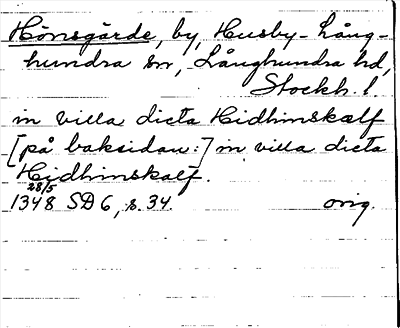 Hönsgärde, by, Husby-Lång-
hundra sn, Långhundra hd,
Stockh. l.
in villa dicta Hidhinskalf
[på baksidan:] in villa dicta
Hidhinskalf.
28/5
1348 SD 6, s. 34. orig.